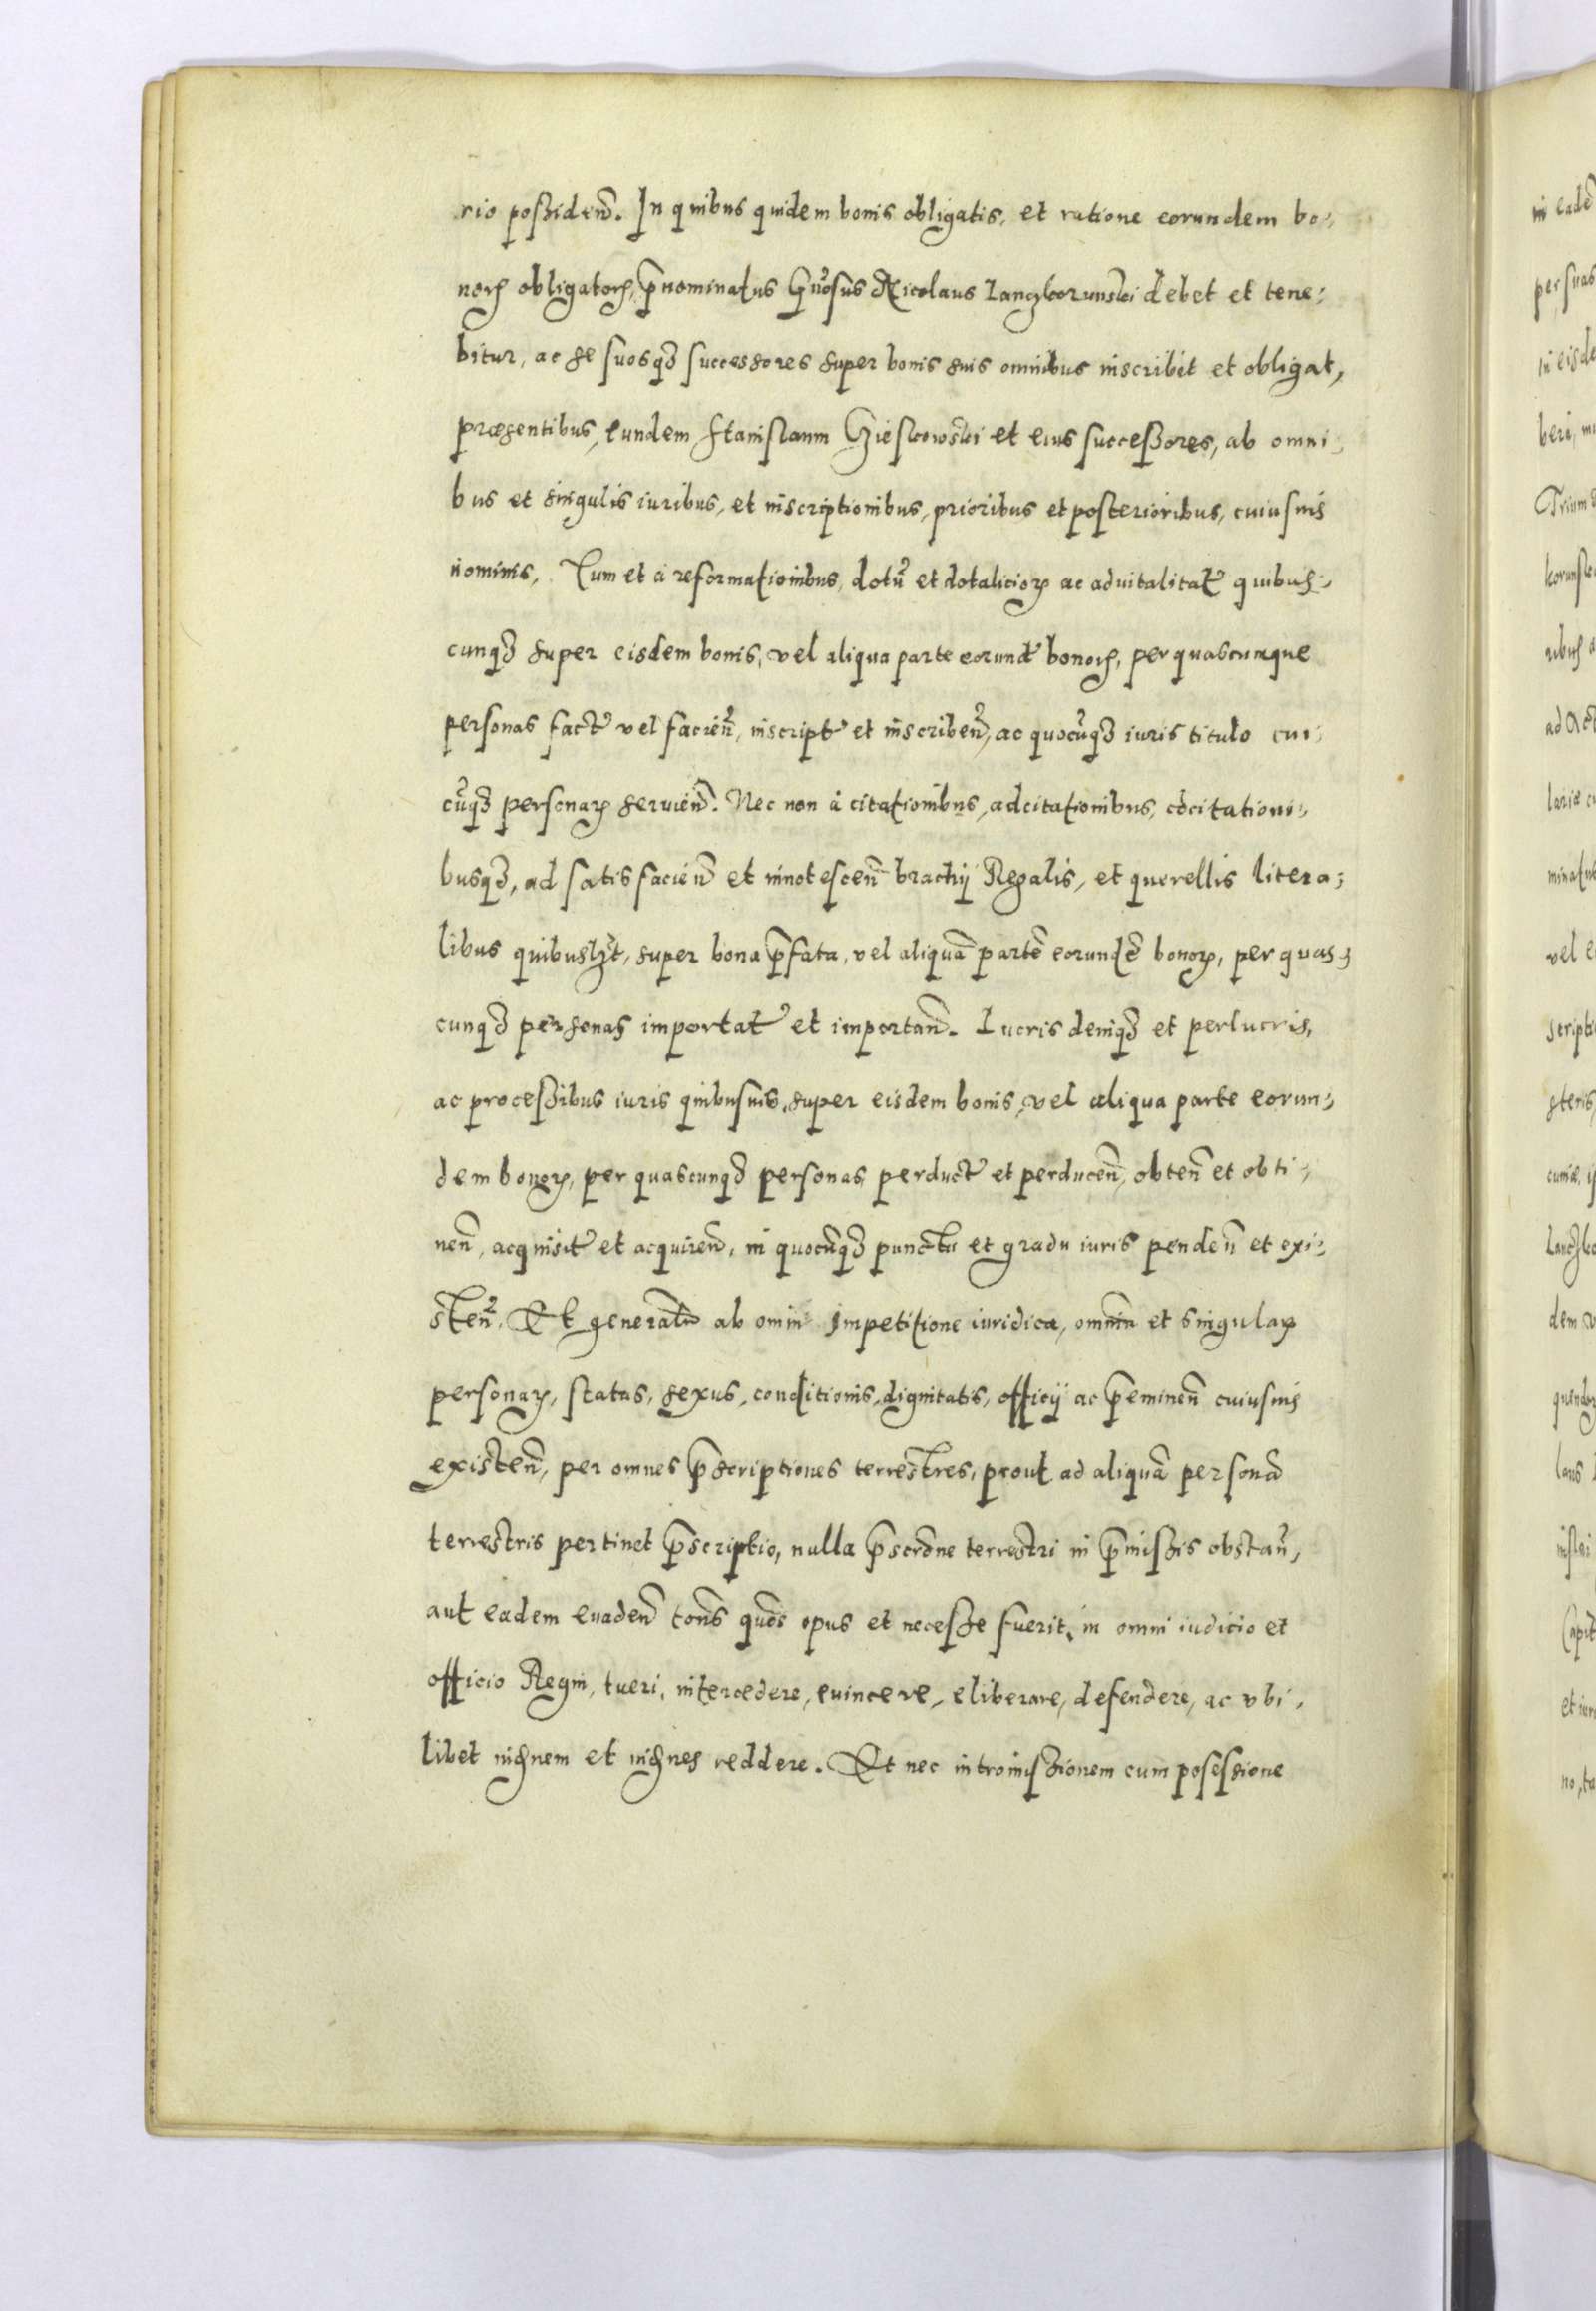 rio possiden̄. In quibus quidem bonis obligatis, et ratione eorundem bo-
norꝝ obligatorꝝ, p̄nominatus Gn̄osus Nicolaus Lanczkorunski debet et tene-
bitur, ac se suosqꝫ successores super bonis suis omnibus inscribit et obligat,
præsentibus, eundem Stanislaum Gieskowski et eius successores, ab omni-
bus et singulis iuribus, et inscriptionibus, prioribus et posterioribus, cuiusuis
nominis, Tum et à reformationibus, dotū et dotaliciorꝝ ac aduitalitat̄ quibus-
cunqꝫ super eisdem bonis, vel aliqua parte eorund̄ bonorꝝ, per quascumque
personas fact̄ vel facien̄, inscript̄ et inscriben̄, ac quocūqꝫ iuris titulo cui-
cūqꝫ personarꝝ seruien̄. Nec non à citationibus, adcitationibus, cōcitationi-
busqꝫ, ad satisfacien̄ et innotescen̄ brachij Regalis, et querellis litera-
libus quibuslꝫt, super bona p̄fata, vel aliquā partē eorundē bonorꝝ, per quas-
cunqꝫ personas importat̄ et importan̄. Lucris deniqꝫ et perlucris,
ac processibus iuris quibusuis, super eisdem bonis, vel aliqua parte eorun-
dem bonorꝝ, per quascunqꝫ personas perduct̄ et perducen̄, obten̄ et obti-
nen̄, acquisit̄ et acquiren̄, in quocūqꝫ punctu et gradu iuris penden̄ et exi-
sten̄. Et generalr̄ ab omni impetitione iuridica, omniū et singularꝝ
personarꝝ, status, sexus, conditionis, dignitatis, officij ac p̄eminen̄ cuiusuis
existen̄, per omnes p̄scriptiones terrestres, prout ad aliquā personā
terrestris pertinet p̄scriptio, nulla p̄scrōne terrestri in p̄missis obstan̄,
aut eadem euaden̄ tōns quōns opus et necesse fuerit, in omni iudicio et
officio Regni, tueri, intercedere, euincere, eliberare, defendere, ac vbi-
libet indēnem et indēnes reddere. Et nec intromissionem cum posessione